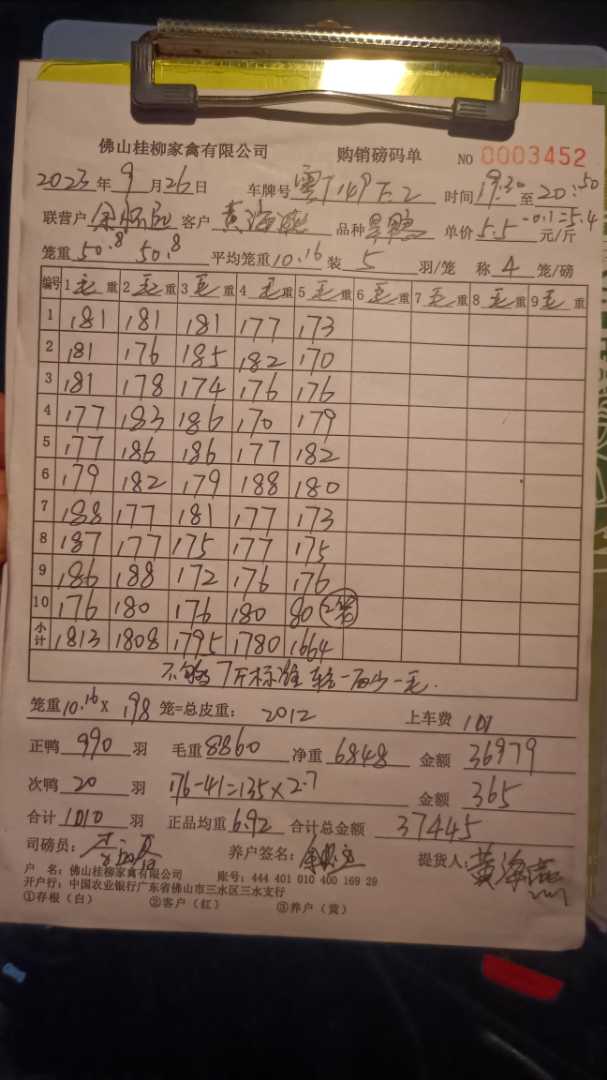 佛山桂柳家禽有限公司 购销磅码单 NO 0003452
2023年9月26日 车牌号 时间19:30至20:50
联营户 客户 黄海燕 品种 单价5.5-0.1=5.4元/斤
笼重50.8 50.8 平均笼重10.16装5羽/笼 称4笼/磅
编号 1毛重 2毛重 3毛重 4毛重 5毛重 6毛重 7毛重 8毛重 9毛重
1 181 181 181 177 173
2 181 176 185 182 170
3 181 178 174 176 176
4 177 183 186 170 179
5 177 186 186 177 182
6 179 182 179 188 180
7 188 177 181 177 173
8 187 177 175 177 175
9 186 188 172 176 176
10 176 180 176 180 80 (2笼)
小计 1813 1808 1795 1780 1664
不够7斤标准 轻一两少一毛.
笼重10.16×198笼=总皮重：2012 上车费101
正鸭990羽 毛重8860 净重6848 金额36979
次鸭20羽 176-41=135×2.7 金额365
合计1010羽 正品均重6.92 合计总金额37445
司磅员： 养户签名： 提货人：黄海燕
户 名：佛山桂柳家禽有限公司 账号：444 401 010 400 169 29
开户行：中国农业银行广东省佛山市三水区三水支行
①存根（白） ②客户（红） ③养户（黄）